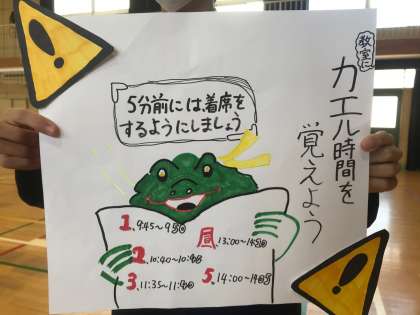 教室に
カエル時間を
覚えよう
5分前には着席を
するようにしましょう
1、9:45〜9:50
2、10:40〜10:45
3、11:35〜11:40
昼、13:00〜
5、14:00〜